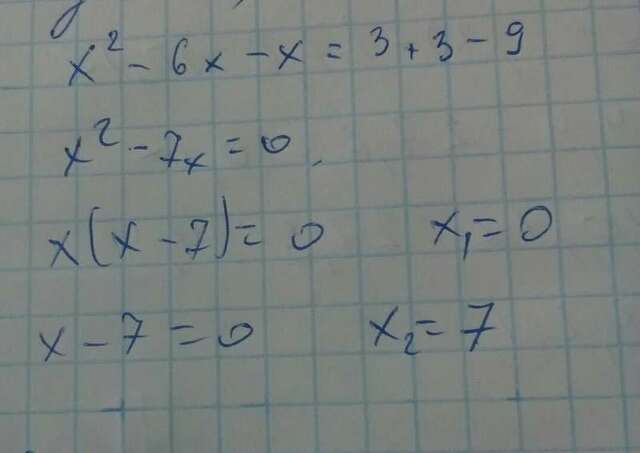 x² - 6x - x = 3 + 3 - 9
x² - 7x = 0
x(x - 7) = 0    x₁ = 0
x - 7 = 0    x₂ = 7